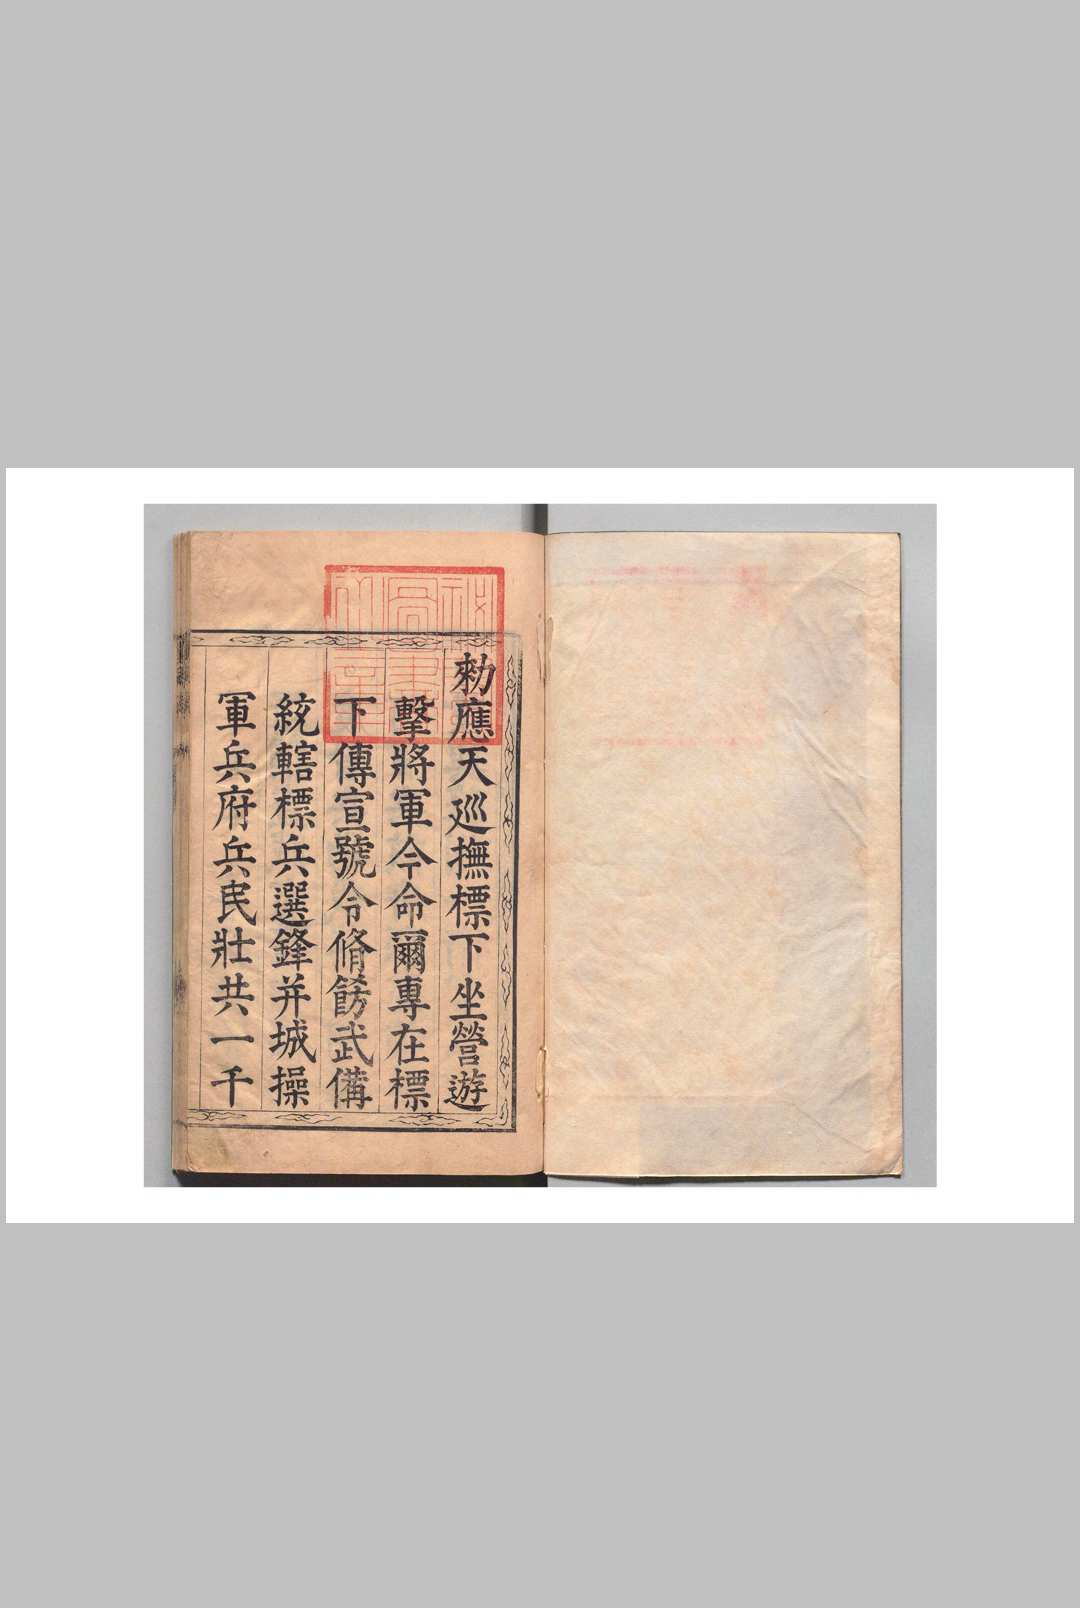 勑應天巡撫標下坐營遊
擊將軍今命爾專在標
下傳宣號令脩飭武備
統轄標兵選鋒并城操
軍兵府兵民壯共一千